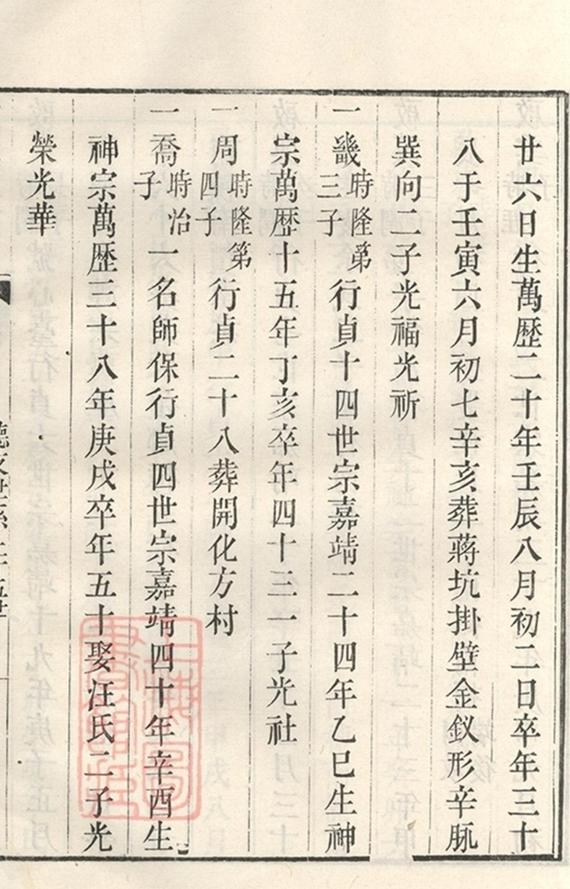 廿六日生萬歷二十年壬辰八月初二日卒年三十
八于壬寅六月初七辛亥葬蔣坑掛壁金釵形辛脈
巽向二子光福光祈
一畿時隆第三子行貞十四世宗嘉靖二十四年乙巳生神
宗萬歷十五年丁亥卒年四十三一子光社
一周時隆第四子行貞二十八葬開化方村
一喬時冶子一名師保行貞四世宗嘉靖四十年辛酉生
神宗萬歷三十八年庚戌卒年五十娶汪氏二子光
榮光華